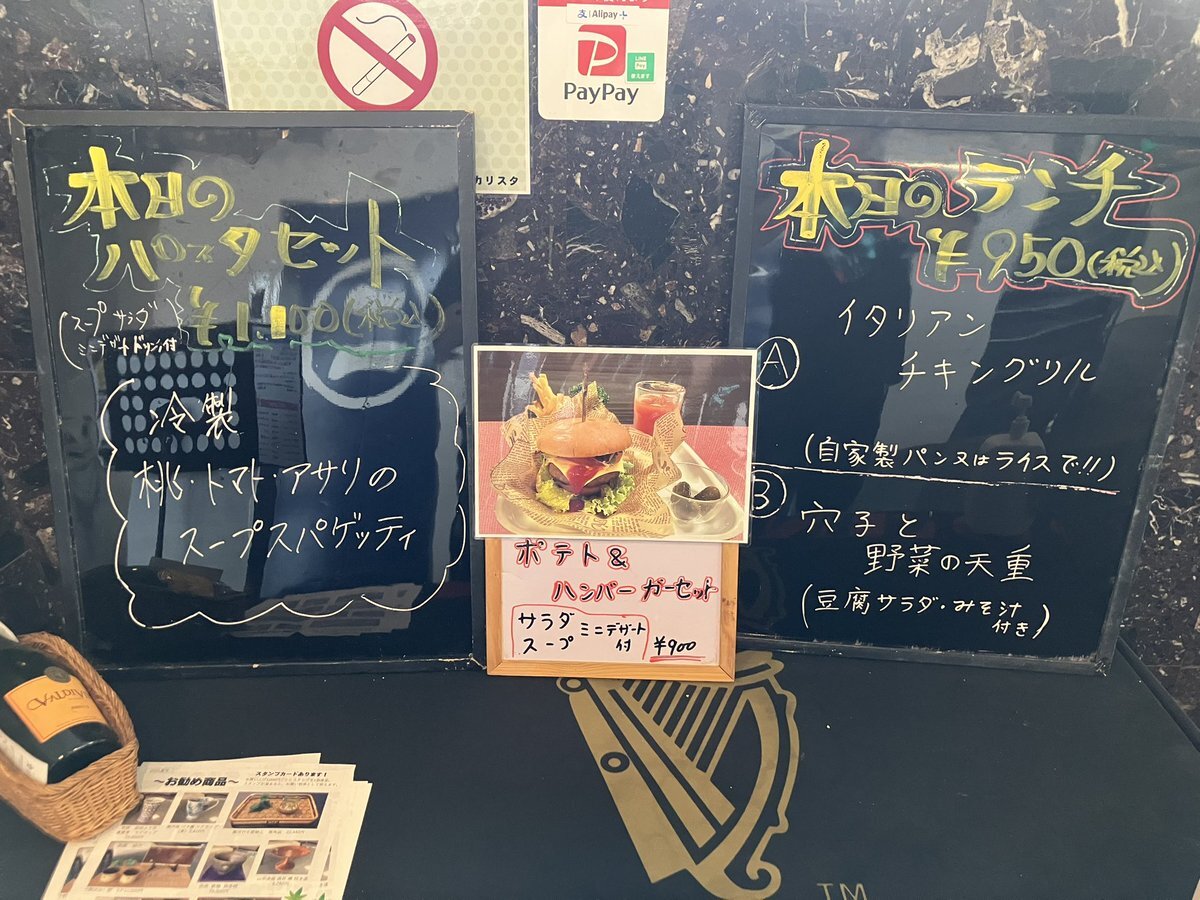 Alipay+
PayPay
LINE Pay
カリスタ
本日の
パスタセット
(スープ サラダ
ミニデザートドリンク付)
(税込)
冷製
桃・トマト・アサリの
スープスパゲッティ
ポテト&
ハンバーガーセット
サラダ ミニデザート
スープ 付 ¥900
本日のランチ
¥950(税込)
A
イタリアン
チキングリル
(自家製パン又はライスで!!)
B
穴子と
野菜の天重
(豆腐サラダ・みそ汁
付き)
スタンプカードあります!
~お勧め商品~
TM